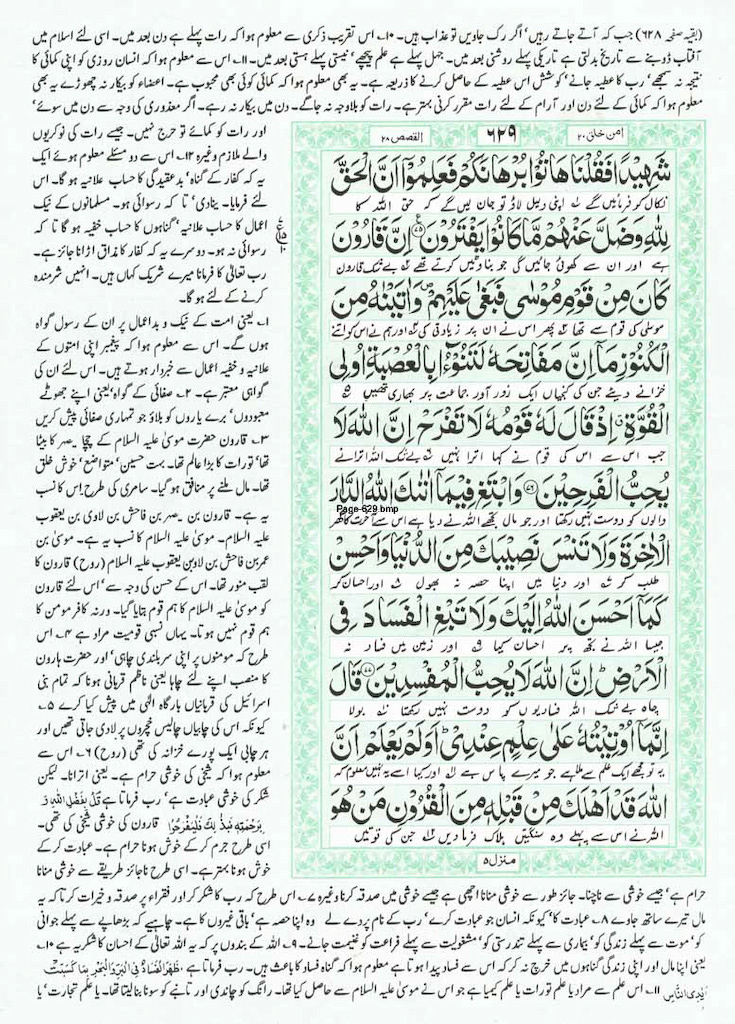 (بقیہ صفحہ ۶۲۸) جب کہ آتے جاتے رہیں' اگر رک جاویں تو عذاب ہیں۔ ۱۰۔ اس تقریب ذکری سے معلوم ہوا کہ رات پہلے ہے دن بعد میں۔ اسی لئے اسلام میں
آفتاب ڈوبنے سے تاریخ بدلتی ہے تاریکی پہلے روشنی بعد میں۔ جہل پہلے ہے علم پیچھے' نیستی پہلے ہستی بعد میں۔ ۱۱۔ اس سے معلوم ہوا کہ انسان روزی کو اپنی کمائی کا
نتیجہ نہ سمجھے' رب کا عطیہ جانے' کوشش اس عطیہ کے حاصل کرنے کا ذریعہ ہے۔ یہ بھی معلوم ہوا کہ کمائی کوئی بھی محبوب ہے۔ اعضاء کو بیکار نہ چھوڑے یہ بھی
معلوم ہوا کہ کمائی کے لئے دن اور آرام کے لئے رات مقرر کرنی بہتر ہے۔ رات کو بلاوجہ نہ جاگے۔ دن میں بیکار نہ رہے۔ اگر معذوری کی وجہ سے دن میں سوئے'
امن خلق ۲۰
۶۲۹
القصص ۲۸
شَهِيْدًا فَقُلْنَا هَاتُوْا بُرْهَانَكُمْ فَعَلِمُوْٓا اَنَّ الْحَقَّ
نکال کر فرمائیں گے اپنی دلیل لاؤ تو جان لیں گے کہ حق اللہ کا
لِلّٰهِ وَضَلَّ عَنْهُمْ مَّا كَانُوْا يَفْتَرُوْنَ ۝۷۵ اِنَّ قَارُوْنَ
ہے اور ان سے کھوئی جائیں گی جو بناوٹیں کرتے تھے بے شک قارون
كَانَ مِنْ قَوْمِ مُوْسٰى فَبَغٰى عَلَيْهِمْ وَاٰتَيْنٰهُ مِنَ
موسیٰ کی قوم سے تھا پھر اس نے ان پر زیادتی کی اور ہم نے اس کو اتنے
الْكُنُوْزِ مَآ اِنَّ مَفَاتِحَهٗ لَتَنُوْٓءُ اُ بِالْعُصْبَةِ اُولِى
خزانے دیئے جن کی کنجیاں ایک زور آور جماعت پر بھاری تھیں
الْقُوَّةِ اِذْ قَالَ لَهٗ قَوْمُهٗ لَا تَفْرَحْ اِنَّ اللّٰهَ لَا
جب اس سے اس کی قوم نے کہا اترا نہیں بے شک اللہ اترانے
يُحِبُّ الْفَرِحِيْنَ ۝۷۶ وَابْتَغِ فِيْمَآ اٰتٰىكَ اللّٰهُ الدَّارَ
Page-629.bmp
والوں کو دوست نہیں رکھتا اور جو مال تجھے اللہ نے دیا ہے اس سے آخرت کا گھر
الْاٰخِرَةَ وَلَا تَنْسَ نَصِيْبَكَ مِنَ الدُّنْيَا وَاَحْسِنْ
طلب کر اور دنیا میں اپنا حصہ نہ بھول اور احسان کر
كَمَآ اَحْسَنَ اللّٰهُ اِلَيْكَ وَلَا تَبْغِ الْفَسَادَ فِى
جیسا اللہ نے تجھ پر احسان کیا اور زمین میں فساد نہ
الْاَرْضِ اِنَّ اللّٰهَ لَا يُحِبُّ الْمُفْسِدِيْنَ ۝۷۷ قَالَ
چاہ بے شک اللہ فسادیوں کو دوست نہیں رکھتا بولا
اِنَّمَآ اُوْتِيْتُهٗ عَلٰى عِلْمٍ عِنْدِىْ اَوَلَمْ يَعْلَمْ اَنَّ
یہ تو مجھے ایک علم سے ملا ہے جو میرے پاس ہے اور کیا اسے یہ نہیں معلوم کہ
اللّٰهَ قَدْ اَهْلَكَ مِنْ قَبْلِهٖ مِنَ الْقُرُوْنِ مَنْ هُوَ
اللہ نے اس سے پہلے وہ سنگتیں ہلاک فرما دیں جن کی قوتیں
منزل ۵
اور رات کو کمائے تو حرج نہیں۔ جیسے رات کی نوکریوں
والے ملازم وغیرہ ۱۲۔ اس سے دو مسئلے معلوم ہوئے ایک
یہ کہ کفار کے گناہ' بدعقیدگی کا حساب علانیہ ہو گا۔ اس
لئے فرمایا۔ ینادی' تا کہ رسوائی ہو۔ مسلمانوں کے نیک
اعمال کا حساب علانیہ' گناہوں کا حساب خفیہ ہو گا تا کہ
رسوائی نہ ہو۔ دوسرے یہ کہ کفار کا مذاق اڑانا جائز ہے۔
رب تعالیٰ کا فرمانا میرے شریک کہاں ہیں۔ انہیں شرمندہ
کرنے کے لئے ہو گا۔
۱۔ یعنی امت کے نیک و بد اعمال پر ان کے رسول گواہ
ہوں گے۔ اس سے معلوم ہوا کہ پیغمبر اپنی امتوں کے
علانیہ و خفیہ اعمال سے خبردار ہوتے ہیں۔ اس لئے ان کی
گواہی معتبر ہے۔ ۲۔ صفائی کے گواہ' یعنی اپنے جھوٹے
معبودوں' برے یاروں کو بلاؤ جو تمہاری صفائی پیش کریں
۳۔ قارون حضرت موسیٰ علیہ السلام کے چچا یصر کا بیٹا
تھا' تورات کا بڑا عالم تھا۔ بہت حسین' متواضع' خوش خلق
تھا۔ مال ملنے پر منافق ہو گیا۔ سامری کی طرح! اس کا نسب
یہ ہے۔ قارون بن یصر بن فاحش بن لاوی بن یعقوب
علیہ السلام۔ موسیٰ علیہ السلام کا نسب یہ ہے۔ موسیٰ بن
عمر بن فاحش بن لاوی بن یعقوب علیہ السلام (روح) قارون کا
لقب منور تھا۔ اس کے حسن کی وجہ سے' اس لئے قارون
کو موسیٰ علیہ السلام کا ہم قوم بتایا گیا۔ ورنہ کافر مومن کا
ہم قوم نہیں ہوتا۔ یہاں نسبی قومیت مراد ہے ۴۔ اس
طرح کہ مومنوں پر اپنی سربلندی چاہی' اور حضرت ہارون
کا منصب اپنے لئے چاہا یعنی ناظم قربانی ہونا کہ تمام بنی
اسرائیل کی قربانیاں بارگاہ الٰہی میں پیش کیا کرے ۵۔
کیونکہ اس کی چابیاں چالیس خچروں پر لادی جاتی تھیں اور
ہر چابی ایک پورے خزانہ کی تھی (روح) ۶۔ اس سے
معلوم ہوا کہ شیخی کی خوشی حرام ہے۔ یعنی اترانا۔ لیکن
شکر کی خوشی عبادت ہے' رب فرماتا ہے قُلْ بِفَضْلِ اللّٰهِ وَ
بِرَحْمَتِهٖ فَبِذٰلِكَ فَلْيَفْرَحُوْا قارون کی خوشی شیخی کی تھی۔
اسی طرح جرم کر کے خوش ہونا حرام ہے۔ عبادت کر کے
خوش ہونا بہتر ہے۔ اسی طرح ناجائز طریقے سے خوشی منانا
حرام ہے' جیسے خوشی سے ناچنا۔ جائز طور سے خوشی منانا اچھی ہے جیسے خوشی میں صدقہ کرنا وغیرہ ۷۔ اس طرح کہ رب کا شکر کر اور فقراء پر صدقہ و خیرات کر تا کہ یہ
مال تیرے ساتھ جاوے ۸۔ عبادت کا' کیونکہ انسان جو عبادت کرے' رب کے نام پر دے لے وہ اپنا حصہ ہے' باقی غیروں کا ہے۔ چاہیے کہ بڑھاپے سے پہلے جوانی
کو' موت سے پہلے زندگی کو' بیماری سے پہلے تندرستی کو' مشغولیت سے پہلے فراغت کو غنیمت جانے۔ ۹۔ اللہ کے بندوں پر کہ یہ اللہ تعالیٰ کے احسان کا شکریہ ہے ۱۰۔
یعنی اپنا مال اور اپنی زندگی گناہوں میں خرچ نہ کر کہ اس سے فساد پیدا ہوتا ہے معلوم ہوا کہ گناہ فساد کا باعث ہیں۔ رب فرماتا ہے، ظَهَرَ الْفَسَادُ فِى الْبَرِّ وَالْبَحْرِ بِمَا كَسَبَتْ
اَيْدِى النَّاسِ ۱۱۔ اس علم سے مراد یا علم تورات یا علم کیمیا ہے جو اس نے موسیٰ علیہ السلام سے حاصل کیا تھا۔ رانگ کو چاندی اور تانبے کو سونا بنا لیتا تھا۔ یا علم تجارت' یا